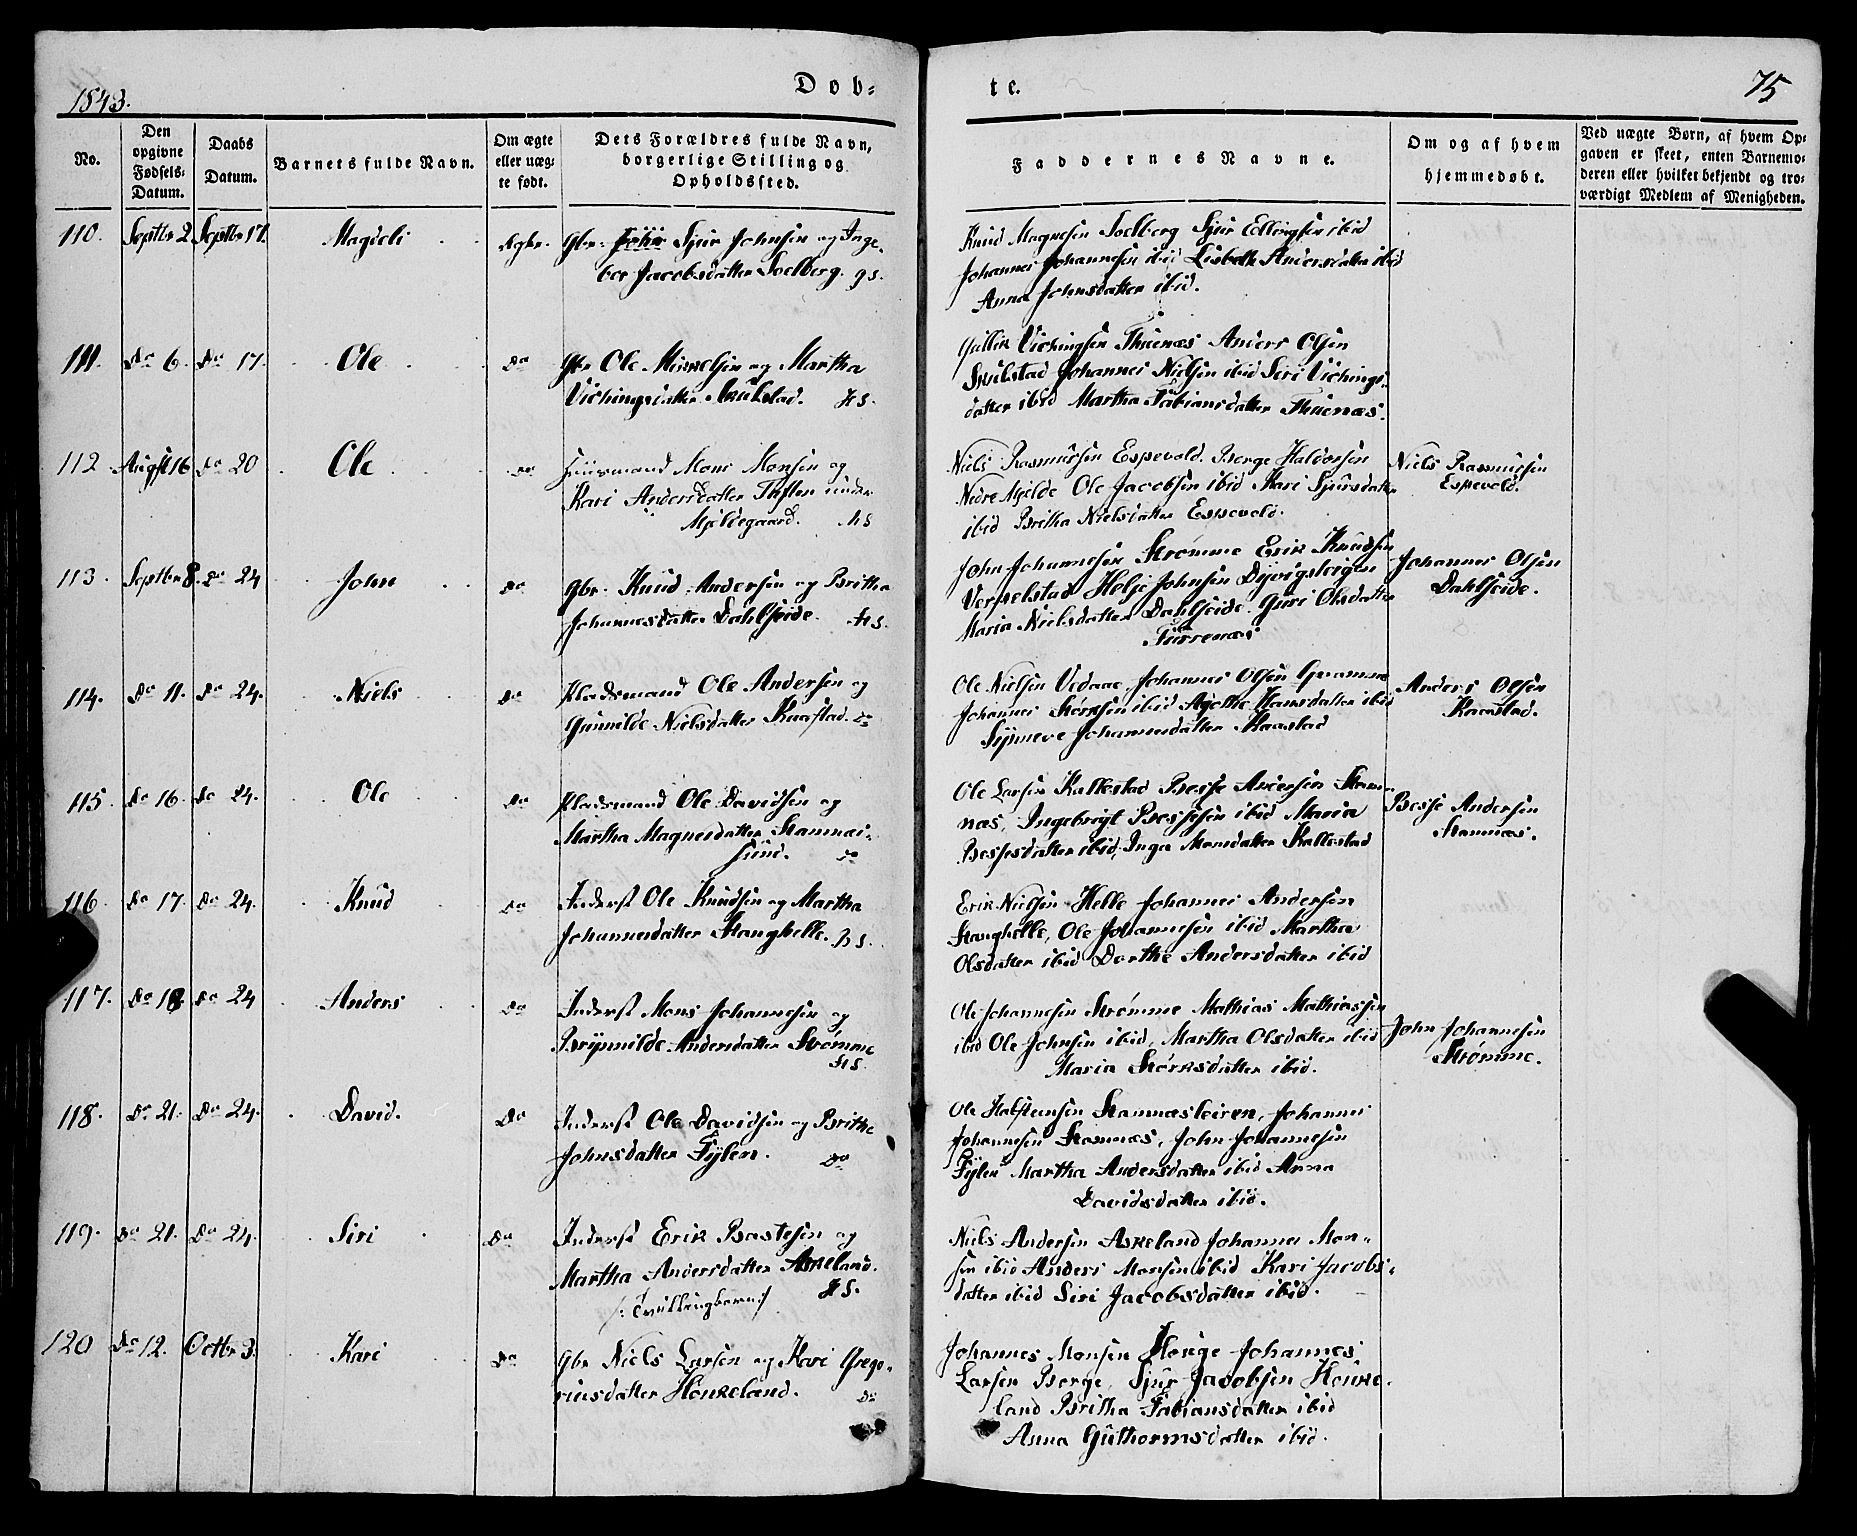 1843.
Dob-
te.
75
No.
Den opgivne Fødsels-Datum.
Daabs Datum.
Barnets fulde Navn.
Om ægte eller uæg-te født.
Dets Forældres fulde Navn, borgerlige Stilling og Opholdssted.
Faddernes Navne.
Om og af hvem hjemmedøbt.
Ved uægte Børn, af hvem Op-gaven er skeet, enten Barnemo-deren eller hvilket bekjendt og tro-værdigt Medlem af Menigheden.
110. Septbr 2 Septbr 17. Magdeli Ægte. Gbr. Sjur Johnsen og Inge-
bor Jacobsdatter Soelberg. gs.
Knud Magnesen Soelberg Sjur Ellingsen ibid
Johannes Johannesen ibid Lisbeth Andersdatter ibid
Anna Johnsdatter ibid.
111. Do 6. Do 17. Ole Do Gbr Ole Mikkelsen og Martha
Vichingsdatter Skulstad. HS.
Gullik Vichingsen Thuenæs Anders Olsen
Skulstad Johannes Nielsen ibid Siri Vichings-
datter ibid Martha Fabiansdatter Thuenæs.
112 Augst 16 Do 20 Ole Do Huusmand Mons Monsen og
Kari Andersdatter Tuften under
Mjeldegaard. HS
Niels Rasmusen Espevold. Berge Haldorsen
Nedre Mjelde Ole Jacobsen ibid Kari Sjursdatter
ibid Britha Nielsdatter Espevold.
Niels Rasmusen
Espevold.
113. Septbr 8. Do 24 John Do Gbr. Knud Andersen og Britha
Johannesdatter Dahlseide. HS.
John Johannesen Strømme Erik Knudsen
Vernelstad Helje Johnsen Dyvigsleigen
Maria Nielsdatter Dahlseide. Guri Olsdatter
Furrenæs
Johannes Olsen
Dahlseide.
114. Do 11. Do 24. Niels Do Pladsmand Ole Andersen og
Gunnilde Nielsdatter Knafstad. Do
Ole Nielsen Vedaae, Johannes Olsen
Johannes Størksen ibid Agothe Hansdatter ibid
Synneve Johannesdatter
Anders Olsen
115. Do 16. Do 24. Ole Do Pladsmand Ole Davidsen og
Martha Magnesdatter Stamnæs-
sund. Do
Ole Larsen Kallestad Besse Andersen Stam-
næs, Ingebrigt Bessesen ibid Maria
Bessesdatter ibid, Inga Monsdatter Kallestad
Besse Andersen
Stamnæs.
116. Do 17. Do 24. Knud Do Inderst Ole Knudsen og Martha
Johannesdatter Stanghelle. HS.
Erik Nielsen Helle Johannes Andersen
Stanghelle, Ole Johannesen ibid Martha
Olsdatter ibid Dorthe Andersdatter ibid
117. Do 18 Do 24 Anders Do Inderst Mons Johannesen og
Brynnilde Andersdatter Strømme
HS.
Ole Johannesen Strømme Mathias Mathiassen
ibid Ole Johnsen ibid, Martha Olsdatter ibid
Maria Størksdatter ibid.
John Johannesen
Strømme.
118. Do 21. Do 24. David. Do Inderst Ole Davidsen og Brithe
Johnsdatter Fylen. Do
Ole Halsteinsen Stamnæsleiren, Johannes
Johannesen Stamnæs, John Johannesen
Fylen Martha Andersdatter ibid Anna
Davidsdatter ibid.
119. Do 21. Do 24. Siri Do Inderst Erik Bastesen og
Martha Andersdatter Askeland.
/: Tvillingbørn :/ HS.
Niels Andersen Askeland Johannes Mon-
sen ibid Anders Monsen ibid Kari Jacobs-
datter ibid Siri Jacobsdatter ibid.
120 Do 12. Octbr 3. Kari Do Gbr Niels Larsen og Kari Grego-
riusdatter Hønkeland. Do
Johannes Monsen Houge Johannes
Larsen Berge, Sjur Jacobsen Hønke-
land Britha Fabiansdatter ibid
Anna Guthormsdatter ibid.